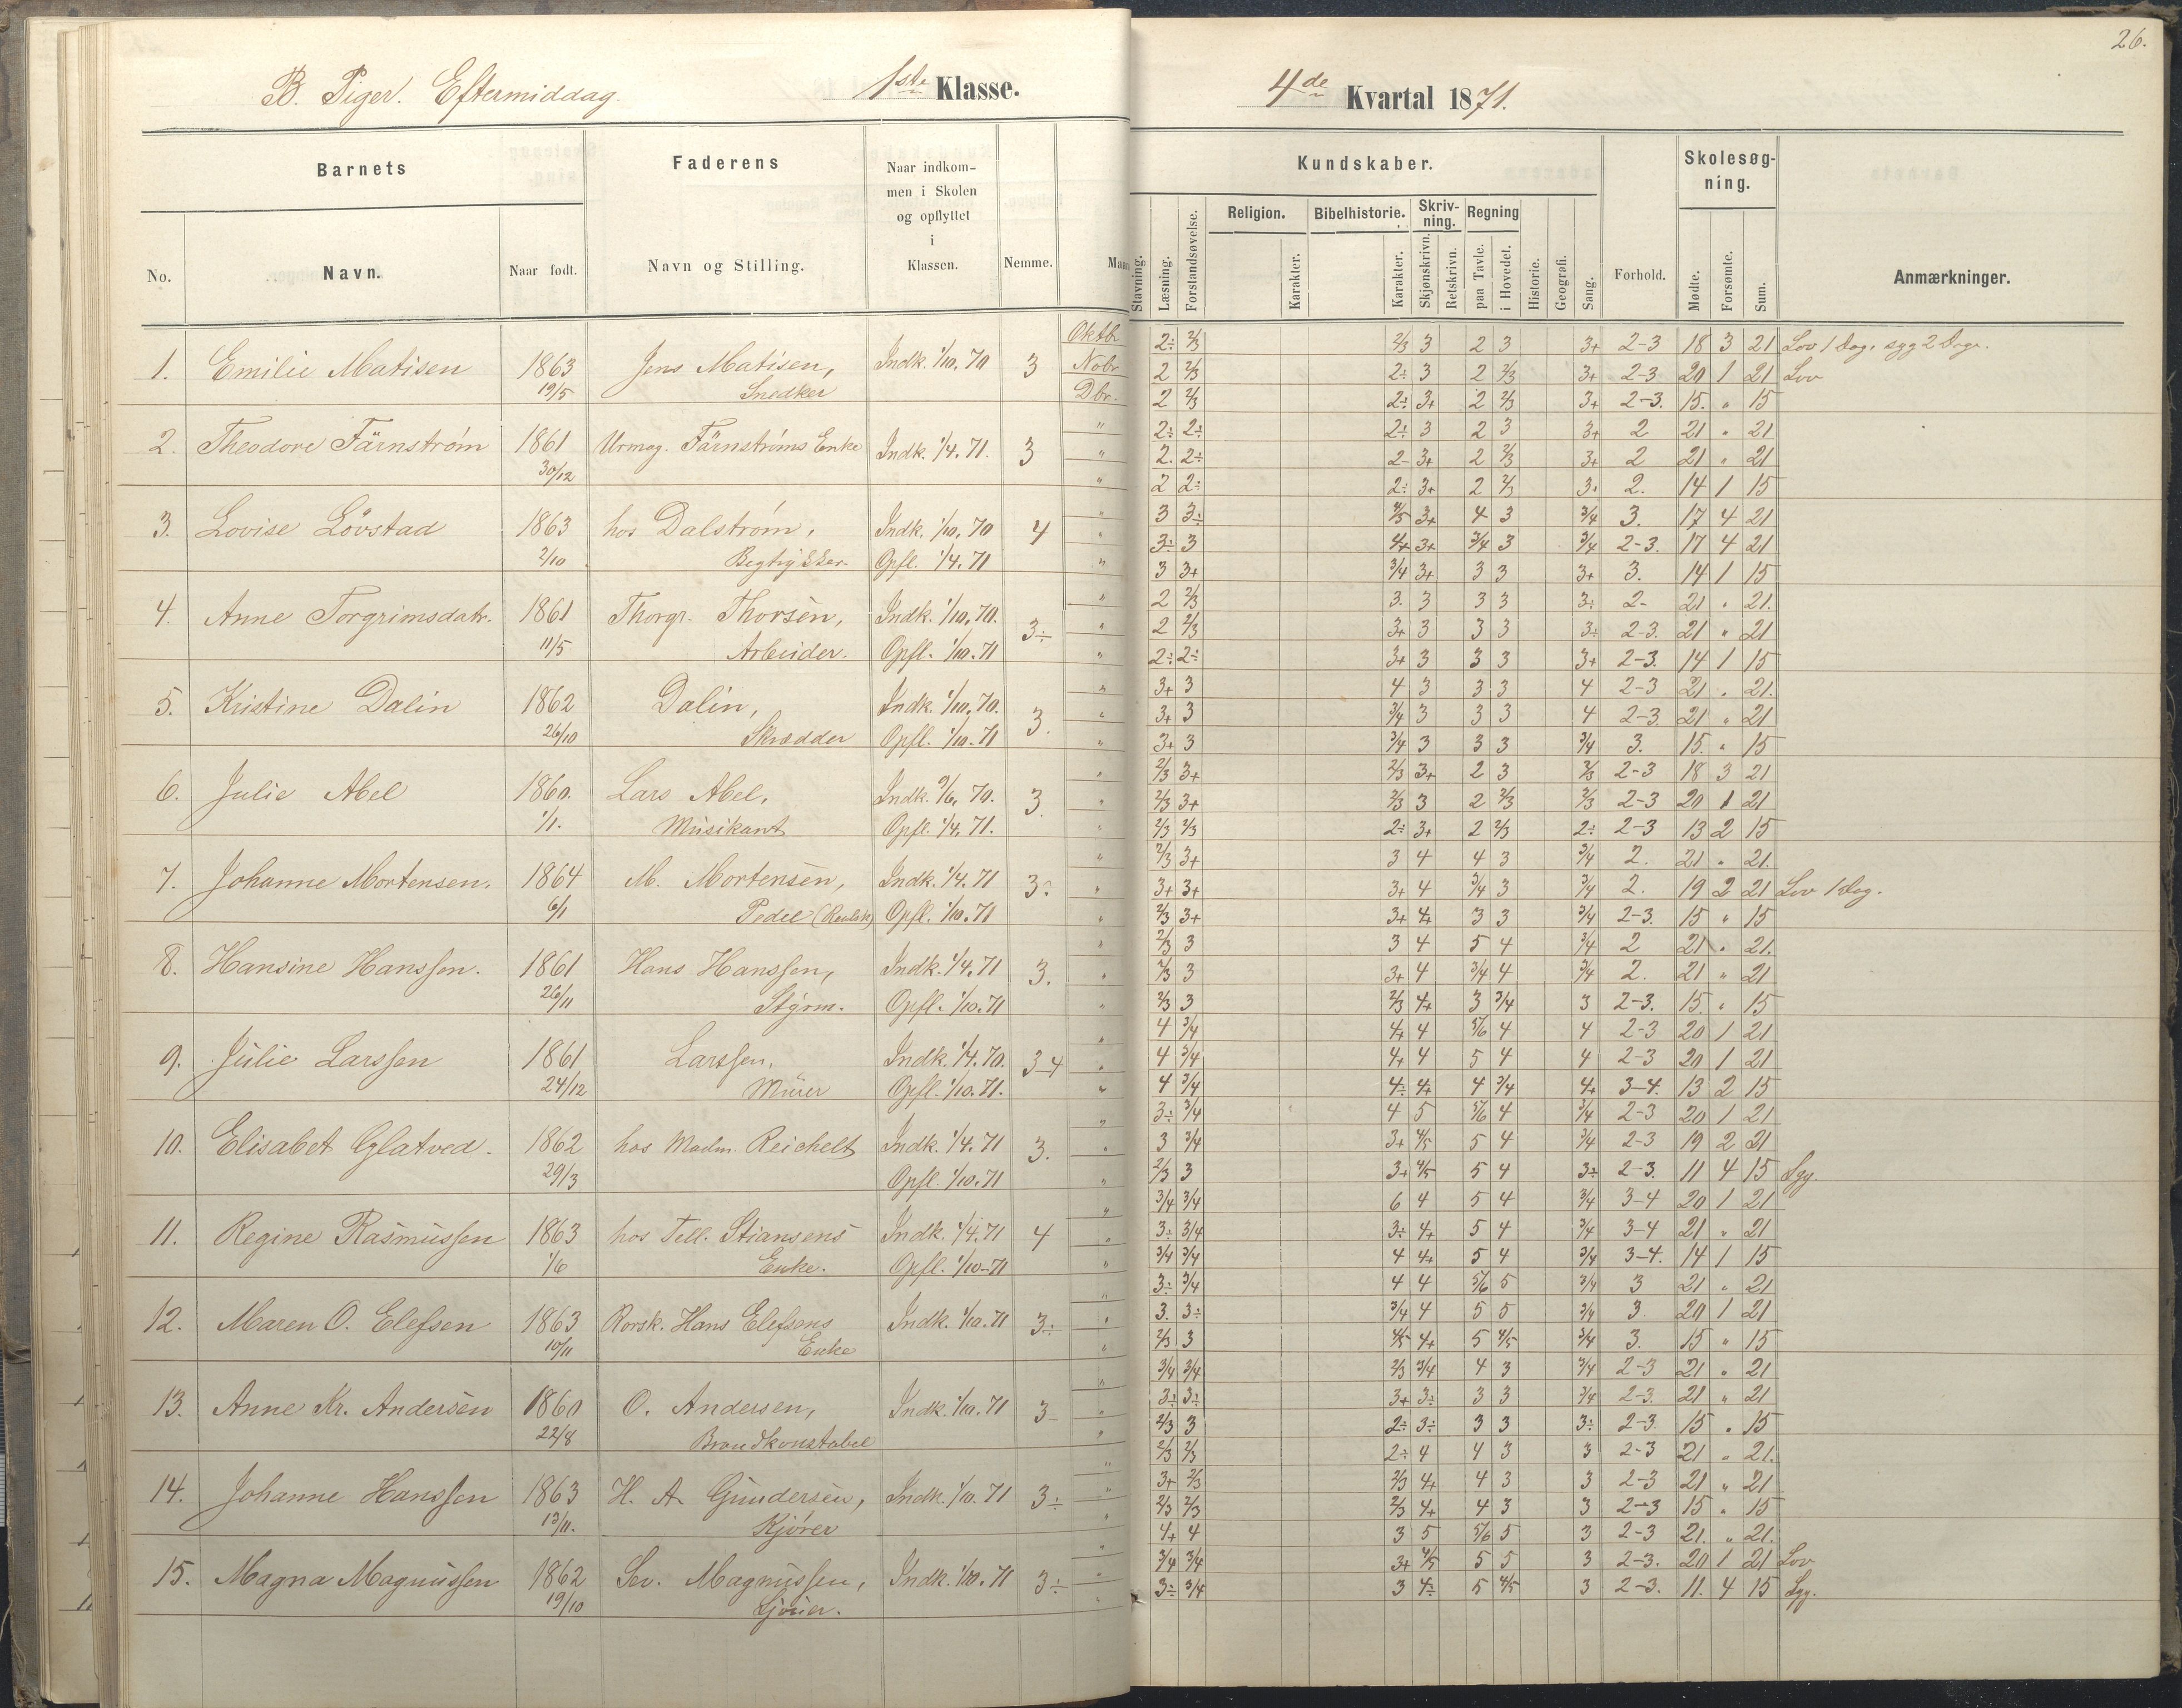 26.
B. Piger. Eftermiddag. 1ste Klasse. 4de Kvartal 1871.
Barnets Faderens Naar indkommen i Skolen og opflyttet i Klassen. Nemme. Kundskaber. Forhold. Skolesøgning. Anmærkninger.
No. Navn. Naar født. Navn og Stilling. Stavning. Læsning. Forstandsøvelse. Religion. Karakter. Bibelhistorie. Karakter. Skrivning. Skjønskrivn. Retskrivn. Regning paa Tavle. i Hovedet. Historie. Geografi. Sang. Mødte. Forsømte. Sum.
Oktbr 2÷ 2/3 2/3 3 2 3 3+ 2-3 18 3 21 Lov 1 Dag, syg 2 Dage.
1. Emilie Matisen 1863 Jens Matisen, Indk. 1/10. 70 3 Nobr 2 2/3 2÷ 3 2 2/3 3+ 2-3 20 1 21 Lov
19/5 Snedker Dbr. 2 2/3 2÷ 3+ 2 2/3 3+ 2-3. 15. " 15
" 2÷ 2÷ 2÷ 3 2 3 3+ 2 21 " 21
2. Theodore Färnstrøm 1861 Urmag. Färnstrøms Enke Indk. 1/4. 71. 3 " 2. 2÷ 2- 3+ 2 2/3 3+ 2 21 " 21
30/12 " 2 2÷ 2÷ 3+ 2 2/3 3+ 2. 14 1 15
" 3 3÷ 4/5 3+ 4 3 3/4 3. 17 4 21
3. Lovise Lövstad 1863 hos Dalstrøm, Indk. 1/10. 70 4 " 3÷ 3 4+ 3+ 3/4 3 3/4 2-3. 17 4 21
2/10 Opfl. 1/4. 71 " 3 3+ 3/4 3+ 3 3 3+ 3. 14 1 15
" 2 2/3 3. 3 3 3 3÷ 2- 21 " 21.
4. Anne Torgrimsdatr. 1861 Thorgr. Thorsen, Indk. 1/10. 70. 3÷ " 2 2/3 3+ 3 3 3 3÷ 2-3. 21 " 21
11/5 Arbeider. Opfl. 1/10. 71 " 2÷ 2÷ 3+ 3 3 3 3+ 2-3. 14 1 15
" 3+ 3 4 3 3 3 4 2-3 21 . 21.
5. Kristine Dalin 1862 Dalin, Indk. 1/10. 70. 3. " 3+ 3 3/4 3 3 3 4 2-3 21 " 21
26/10 Skrædder Opfl. 1/10. 71 " 3+ 3 3/4 3 3 3 3/4 3. 15. " 15
" 2/3 3+ 2/3 3+ 2 3 2/3 2-3 18 3 21
6. Julie Abel 1860. Lars Abel, Indk. 9/6. 70. 3. " 2/3 3+ 2/3 3 2 2/3 2/3 2-3 20 1 21
1/1. Musikant Opfl. 1/4. 71. " 2/3 2/3 2÷ 3+ 2 2/3 2÷ 2-3 13 2 15
" 2/3 3+ 3 4 4 3 3/4 2. 21 " 21.
7. Johanne Mortensen. 1864 M. Mortensen, Indk. 1/4. 71 3÷ " 3+ 3+ 3+ 4 3/4 3 3/4 2. 19 2 21 Lov 1 Dag.
6/1 Pedel (Realsk) Opfl. 1/10. 71 " 2/3 3+ 3+ 4+ 3 3 3/4 2-3. 15 " 15
" 2/3 3 3 4 5 4 3/4 2 21 . 21.
8. Hansine Hanssen. 1861 Hans Hanssen, Indk. 1/4. 71 3. " 2/3 3 3+ 4 3/4 4 3/4 2. 21 " 21
26/11 Styrm. Opfl. 1/10. 71 " 2/3 3 2/3 4+ 3 3/4 3 2-3. 15. " 15
" 4 3/4 4+ 4 5/6 4 4 2-3 20 1 21
9. Julie Larssen 1861 Larssen, Indk. 1/4. 70. 3-4 " 4 3/4 4+ 4 5 4 4 2-3 20 1 21
24/12 Murer Opfl. 1/10. 71. " 4 3/4 4÷ 4+ 4 3/4 4+ 3-4. 13 2 15
" 3÷ 3/4 4 5 5/6 4 3/4 2-3 20 1 21
10. Elisabet Glatved. 1862 hos Madm. Reichelt Indk. 1/4. 71 3. " 3 3/4 3+ 4/5 5 4 3/4 2-3 19 2 21
29/3 Opfl. 1/10. 71 " 2/3 3 3+ 4/5 5 4 3÷ 2-3. 11 4 15 Syg.
" 3/4 3/4 6 4 5 4 3/4 3-4 20 1 21
11. Regine Rasmussen 1863 hos Tell. Stiansens Indk. 1/4. 71 4 " 3÷ 3/4 3÷ 4+ 5 4 3/4 3-4 21 " 21
1/6 Enke. Opfl. 1/10-71 " 3/4 3/4 4 4+ 5 4 3/4 3-4. 14 1 15
" 3÷ 3/4 4 4 5/6 5 3/4 3 21 " 21
12. Maren O. Elefsen 1863 Rorsk. Hans Elefsens Indk. 1/10. 71 3÷ " 3. 3÷ 3/4 4 5 5 3/4 3. 20 1 21
10/11 Enke " 2/3 3 4/5 4+ 5 4/5 3/4 3. 15 " 15
" 3/4 3/4 2/3 3/4 4 3 3/4 2-3 21 . 21
13. Anne Kr. Andersen 1860 O. Andersen, Indk. 1/10. 71 3- " 3÷ 3÷ 3+ 3÷ 3 3 3/4 2-3. 21 " 21
22/8 Brandkonstabel " 2/3 3 2÷ 3÷ 3 3 3÷ 2-3 15 . 15
" 2/3 2/3 2÷ 4 4 3 3 2-3 21 " 21.
14. Johanne Hanssen 1863 H. A. Gundersen, Indk. 1/10. 71 3÷ " 3+ 2/3 2/3 4+ 4 3 3 2-3 21 " 21
13/11. Kjører " 2/3 2/3 2/3 4+ 4 3 3 2-3 15 " 15
" 4+ 4 3 5 5/6 5 3 2-3 21. " 21.
15. Magna Magnussen 1862 Sev. Magnussen, Indk. 1/10. 71 3÷ " 3/4 3/4 3+ 4/5 5 5 3 2-3. 20 1 21 Lov
19/10 " 3÷ 3/4 3 4÷ 5 4/5 3 2-3. 11. 4 15 Syg.